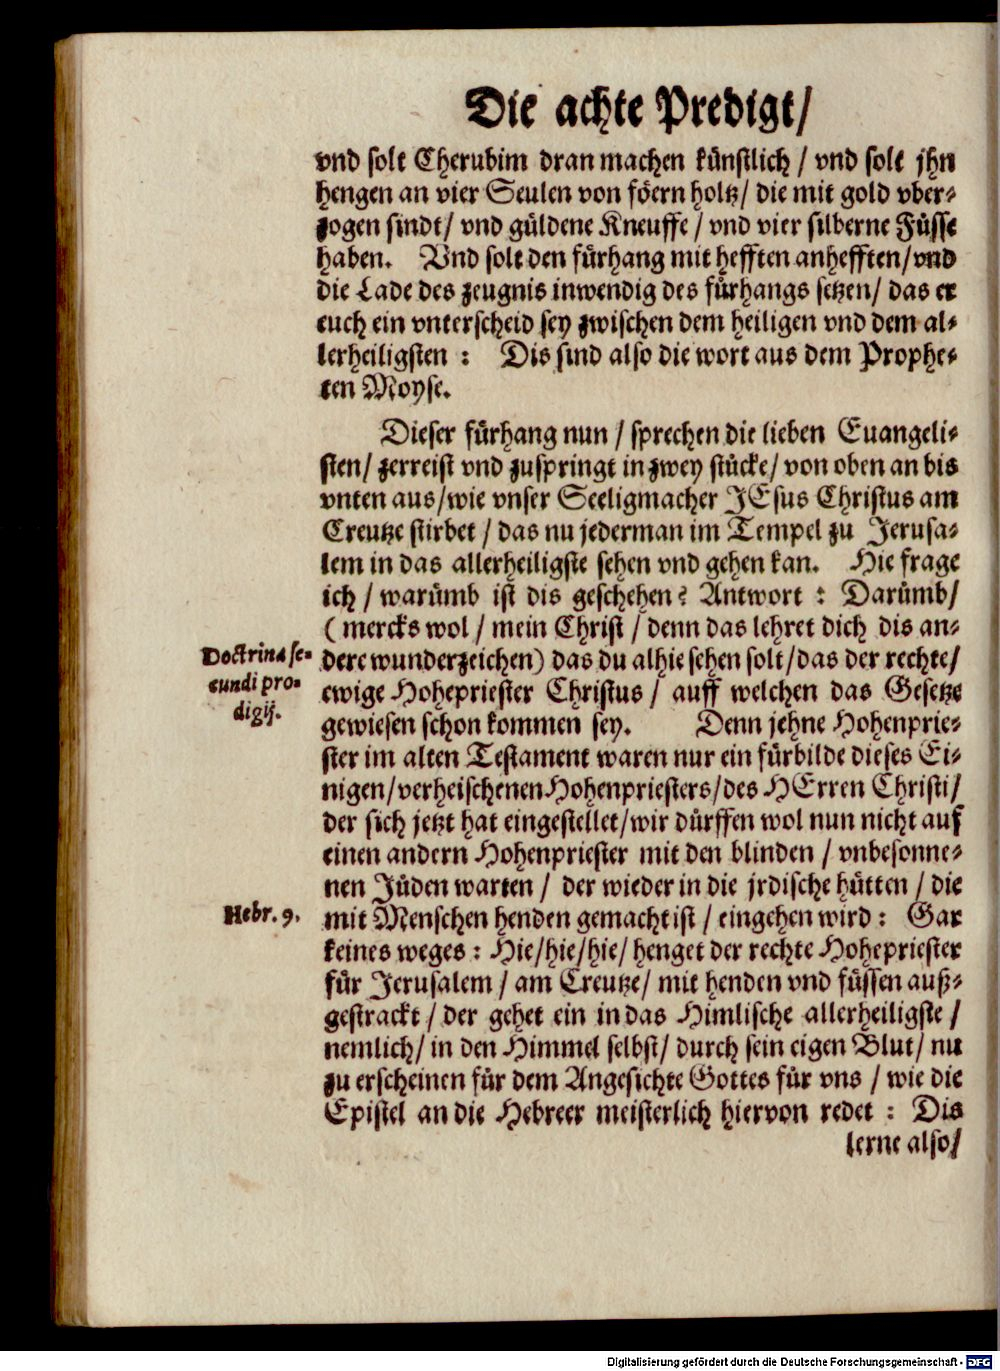 Die achte Predigt/
vnd solt Cherubim dran machen künstlich / vnd solt jhn
hengen an vier Seulen von föern holtz/ die mit gold vber-
zogen sindt/ vnd güldene Kneuffe / vnd vier silberne Füsse
haben. Vnd solt den fürhang mit hefften anhefften/vnd
die Lade des zeugnis inwendig des fürhangs setzen/ das er
euch ein vnterscheid sey zwischen dem heiligen vnd dem al-
lerheiligsten : Dis sind also die wort aus dem Prophe-
ten Moyse.
Dieser fürhang nun / sprechen die lieben Euangeli-
sten/ zerreist vnd zuspringt in zwey stücke/ von oben an bis
vnten aus/wie vnser Seeligmacher JEsus Christus am
Creutze stirbet / das nu jederman im Tempel zu Jerusa-
lem in das allerheiligste sehen vnd gehen kan. Hie frage
ich / warümb ist dis geschehen? Antwort : Darümb/
( mercks wol / mein Christ / denn das lehret dich dis an-
Doctrina se-
cundi pro-
digij.
dere wunderzeichen) das du alhie sehen solt/das der rechte/
ewige Hohepriester Christus / auff welchen das Gesetze
gewiesen schon kommen sey. Denn jehne Hohenprie-
ster im alten Testament waren nur ein fürbilde dieses Ei-
nigen/verheischenen Hohenpriesters/des HErren Christi/
der sich jetzt hat eingestellet/wir dürffen wol nun nicht auf
einen andern Hohenpriester mit den blinden / vnbesonne-
nen Jüden warten / der wieder in die jrdische hütten / die
Hebr. 9.
mit Menschen henden gemacht ist / eingehen wird : Gar
keines weges : Hie/hie/hie/ henget der rechte Hohepriester
für Jerusalem / am Creutze/ mit henden vnd füssen auß-
gestrackt / der gehet ein in das Himlische allerheiligste /
nemlich/ in den Himmel selbst/ durch sein eigen Blut/ nu
zu erscheinen für dem Angesichte Gottes für vns / wie die
Epistel an die Hebreer meisterlich hiervon redet : Dis
lerne also/
Digitalisierung gefördert durch die Deutsche Forschungsgemeinschaft - DFG